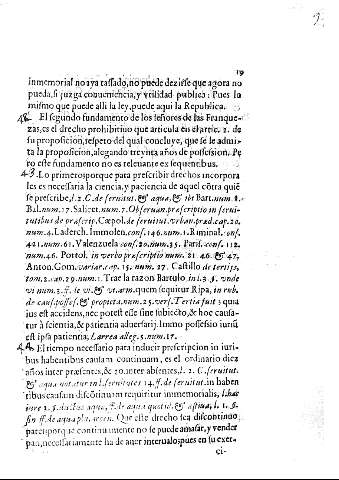 19
Inmemorial no aya tassado, no puede dezirse que agora no
pueda, si juzga conueniencia, y vtilidad publica: Pues lo
mismo que puede alli la ley, puede aqui la Republica.
El segundo fundamento de los señores de las Franque-
zas, es el drecho prohibitiuo que articula en el artic. 2. de
su proposicion, respeto del qual concluye, que se le admi-
ta la proposicion, alegando treynta años de possession. Pe
ro este fundamento no es releuante ex sequentibus.
Lo primero, porque para prescribir drechos incorpora
les es necessaria la ciencia, y paciencia de aquel cōtra quiē
se prescribe, l. 2. C. de seruitut. & aqua, & ibi Bart. num. 8.
Bal. num. 17. Salicet. num. 7. Obseruan. praescriptio in serui-
tutibus de praescrip. Cæpol. de seruitut. vrban. præd. cap. 20.
num. 4. Laderch. Immolen. conf. 146. num. 1. Riminal. conf.
421. num. 61. Valenzuela conf. 20. num. 35. Paris. conf. 112.
num. 46. Portol. in verbo præscriptio num. 21. 46. & 47.
Anton. Gom. variar. cap. 15. num. 27. Castillo de tertijs,
tom. 2. cap. 29. num. 1. Trae la razon Bartulo in l. 3. §. vnde
vi num. 3. ff. de vi & vi arm. quem sequitur Ripa, in rub.
de caus. posses. & propriet. num. 25. vers. Tertia fuit; quia
ius est accidens, nec potest esse sine subiecto, & hoc causa-
tur à scientia, & patientia aduersarij. Immo possessio iuriū
est ipsa patientia, Larrea alleg. 5. num. 17.
El tiempo necessario para inducir prescripcion in iuri-
bus habentibus causam continuam, es el ordinario diez
años inter præsentes, & 20. inter absentes, l. 2. C. seruitut.
& aqua notatur in l. seruitutes 14. ff. de seruitut. in haben
tibus causam discōtinuam requiritur immemorialis, l. hoc
iure §. ductus aquæ, ff. de aqua quotid. & æstiua, l. 1. §.
fin. ff. de aqua plu. arcen. Que este drecho sea discontinuo
patet, porque continuamente no se puede amasar, y vender
pan, necessariamente ha de auer interualos pues en su exer-
ci-